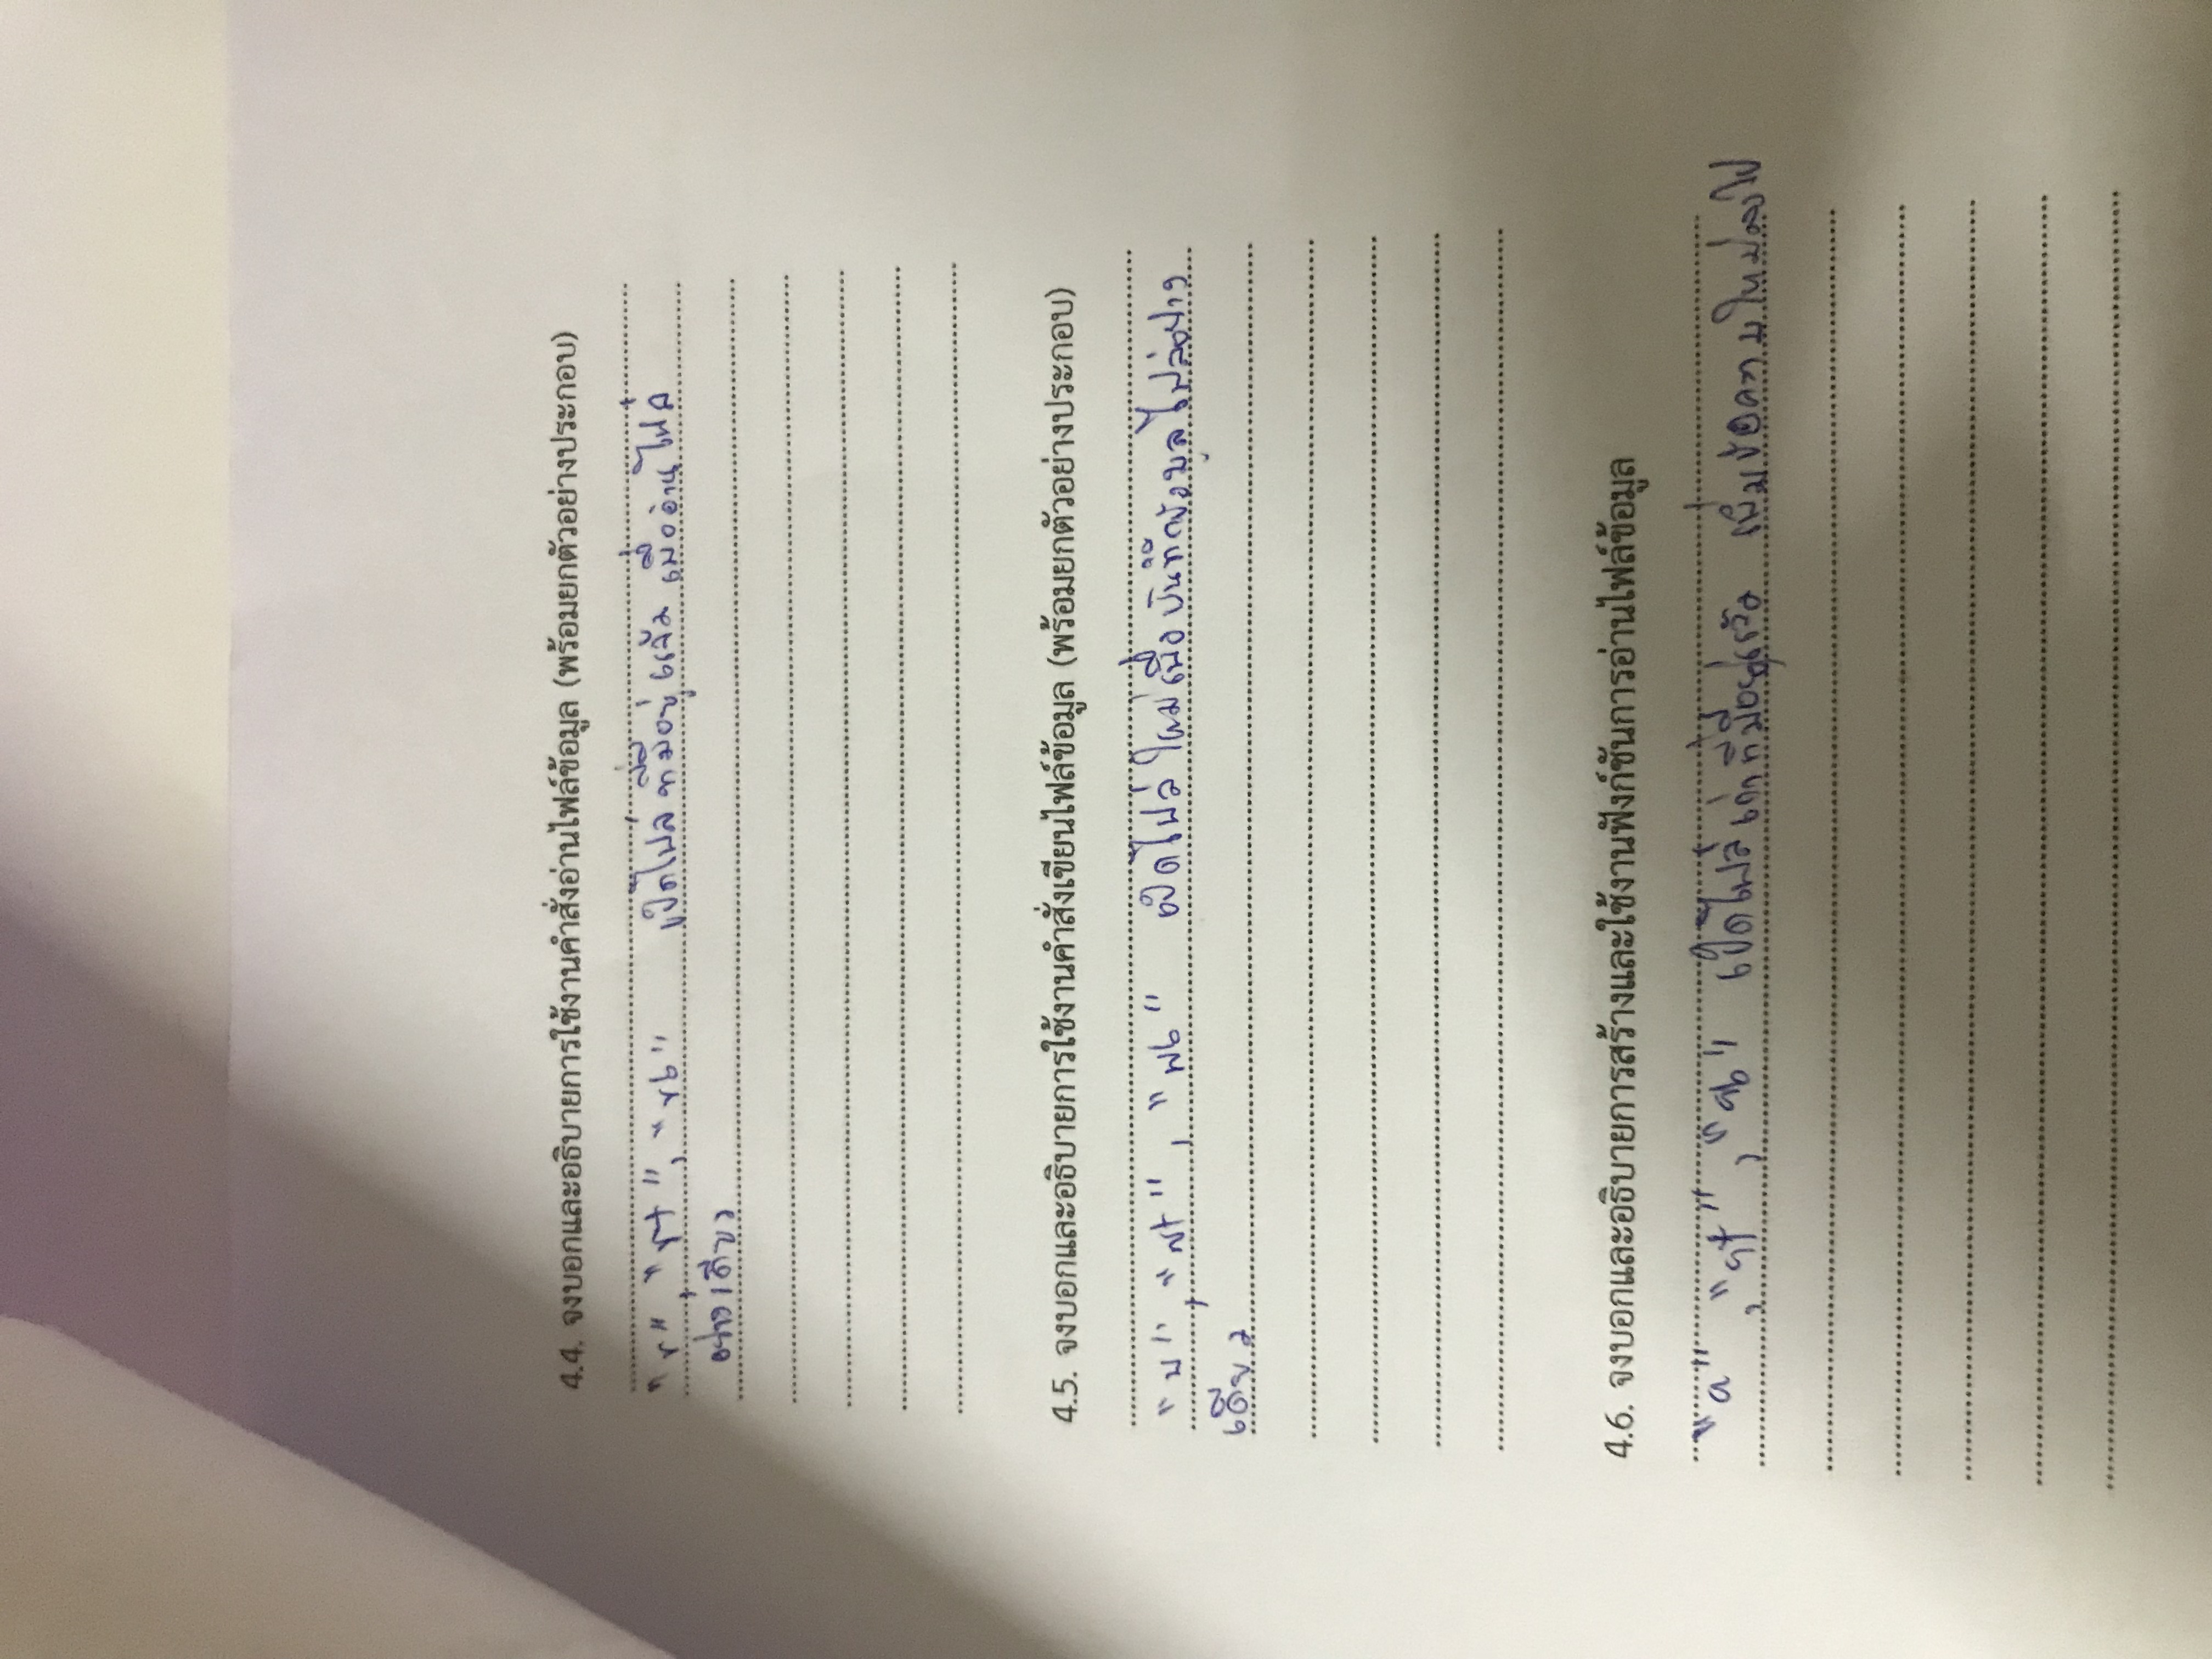 4.4. จงบอกและอธิบายการใช้งานคำสั่งอ่านไฟล์ข้อมูล (พร้อมยกตัวอย่างประกอบ)
"r", "rt", "rb" เปิดไฟล์ ที่มีอยู่แล้ว เพื่ออ่านไฟล์
อย่างเดียว
4.5. จงบอกและอธิบายการใช้งานคำสั่งเขียนไฟล์ข้อมูล (พร้อมยกตัวอย่างประกอบ)
"w", "wt", "wb" เปิดไฟล์ ใหม่เพื่อบันทึกข้อมูลไฟล์อย่าง
เดียว
4.6. จงบอกและอธิบายการสร้างและใช้งานฟังก์ชันการอ่านไฟล์ข้อมูล
"a", "at", "ab" เปิดไฟล์เก่าที่มีอยู่แล้ว เพิ่มข้อความใหม่ลงไป